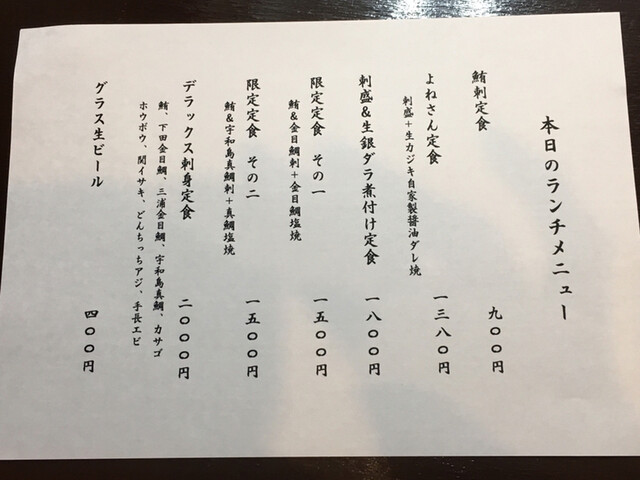 本日のランチメニュー
鮪刺定食 九〇〇円
よねさん定食 一三八〇円
刺盛＋生カジキ自家製醤油ダレ焼
刺盛＆生銀ダラ煮付け定食 一八〇〇円
限定定食 その一 一五〇〇円
鮪＆金目鯛刺＋金目鯛塩焼
限定定食 その二 一五〇〇円
鮪＆宇和島真鯛刺＋真鯛塩焼
デラックス刺身定食 二〇〇〇円
鮪、下田金目鯛、三浦金目鯛、宇和島真鯛、カサゴ
ホウボウ、関イサキ、どんちっちアジ、手長エビ
グラス生ビール 四〇〇円